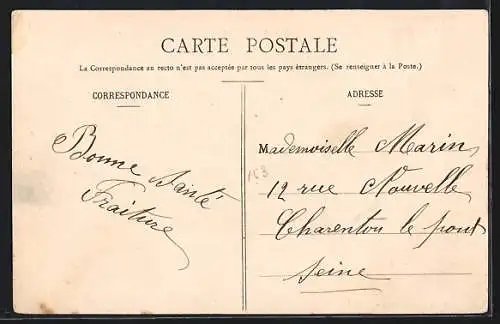 CARTE POSTALE
La Correspondance au recto n'est pas acceptée par tous les pays étrangers. (Se renseigner à la Poste.)
CORRESPONDANCE
Bonne Santé
Fraiture
ADRESSE
Mademoiselle Marin
12 rue Nouvelle
Charenton le pont
Seine
153